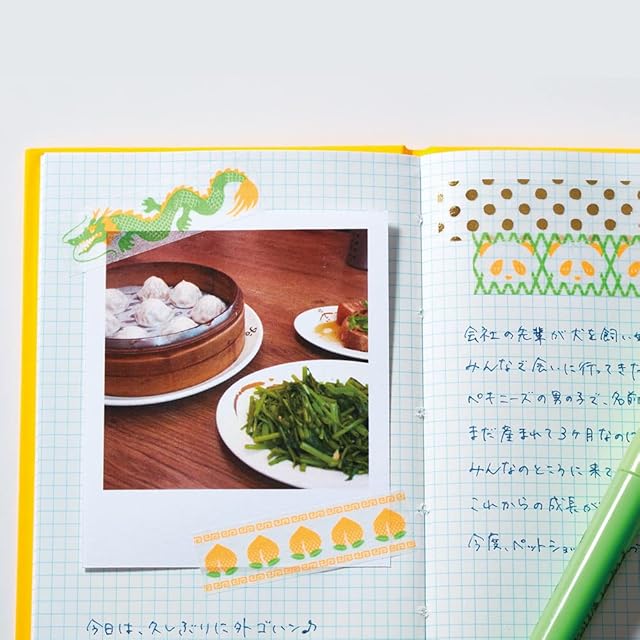 今日は、久しぶりに外ゴハン♪
会社の先輩が犬を飼い始
みんなで会いに行ってきた
ペキニーズの男の子で、名前
まだ産まれて3ヶ月なのに
みんなのところに来て
これからの成長が
今度、ペットショ